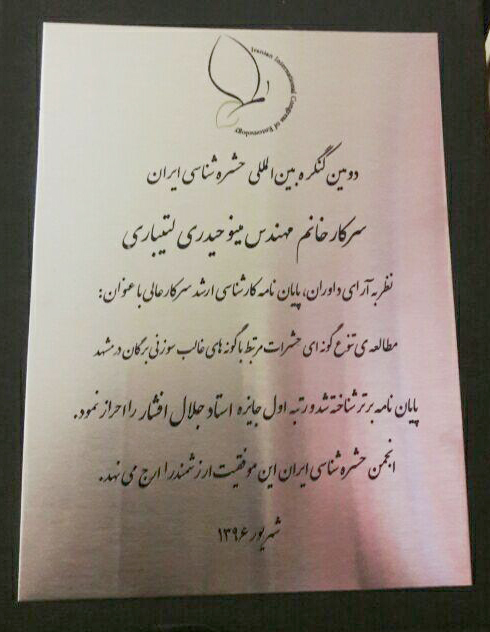 Iranian International Congress of Entomology
دومین کنگره بین‌المللی حشره شناسی ایران
سرکار خانم مهندس مینو حیدری لتیباری
نظر به آرای داوران، پایان نامه کارشناسی ارشد سرکار عالی با عنوان:
مطالعه ی تنوع گونه ای حشرات مرتبط با گونه های غالب سوزنی برگان در مشهد
پایان نامه برتر شناخته شد و رتبه اول جایزه استاد جلال افشار را احراز نمود.
انجمن حشره شناسی ایران این موفقیت ارزشمند را ارج می نهد.
شهریور ۱۳۹۶